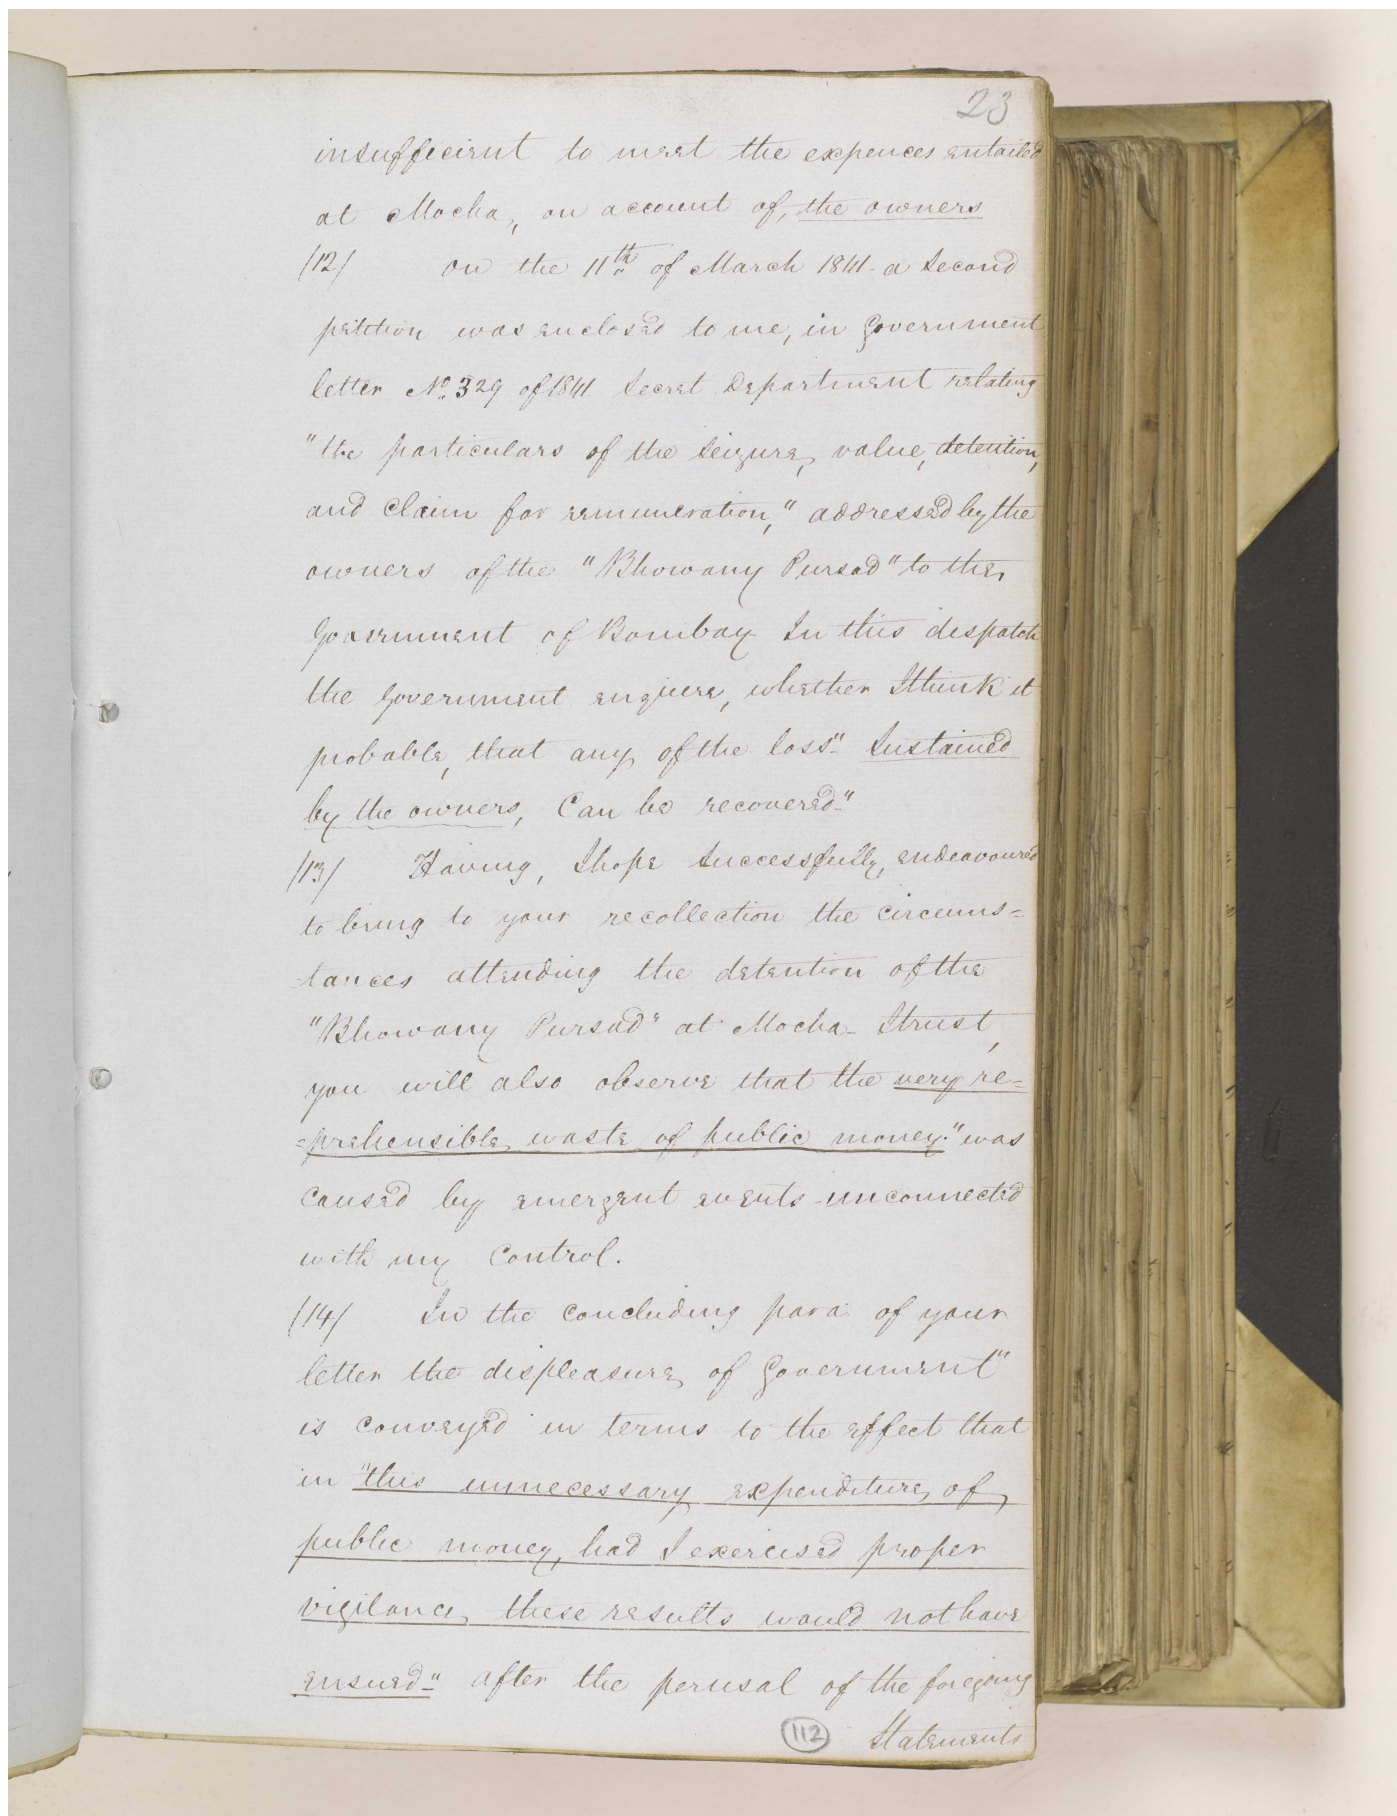 23
insufficient to meet the expences entailed
at Mocha, on account of, the owners
/12/ On the 11th of March 1841 - a Second
petition was enclosed to me, in Government
letter No. 329 of 1841 Secret Department relating
"the particulars of the Seizure, value, detention,
and Claim for remuneration," addressed by the
owners of the "Bhowany Pursad" to the
Government of Bombay In this dispatch
the Government enquire, whether I think it
probable, that any of the loss" Sustained
by the owners, Can be recovered"
/13/ Having, I hope Successfully, endeavoured
to bring to your recollection the circums=
=tances attending the detention of the
"Bhowany Pursad" at Mocha - I trust,
you will also observe that the very re=
=prehensible waste of public money." was
Caused by emergent events unconnected
with my Control.
/14/ In the Concluding para of your
letter the displeasure of Government"
is conveyed in terms to the effect that
in "this unnecessary expenditure of
public money, had I exercised proper
vigilance these results would not have
ensued" after the perusal of the foregoing
112 Statements